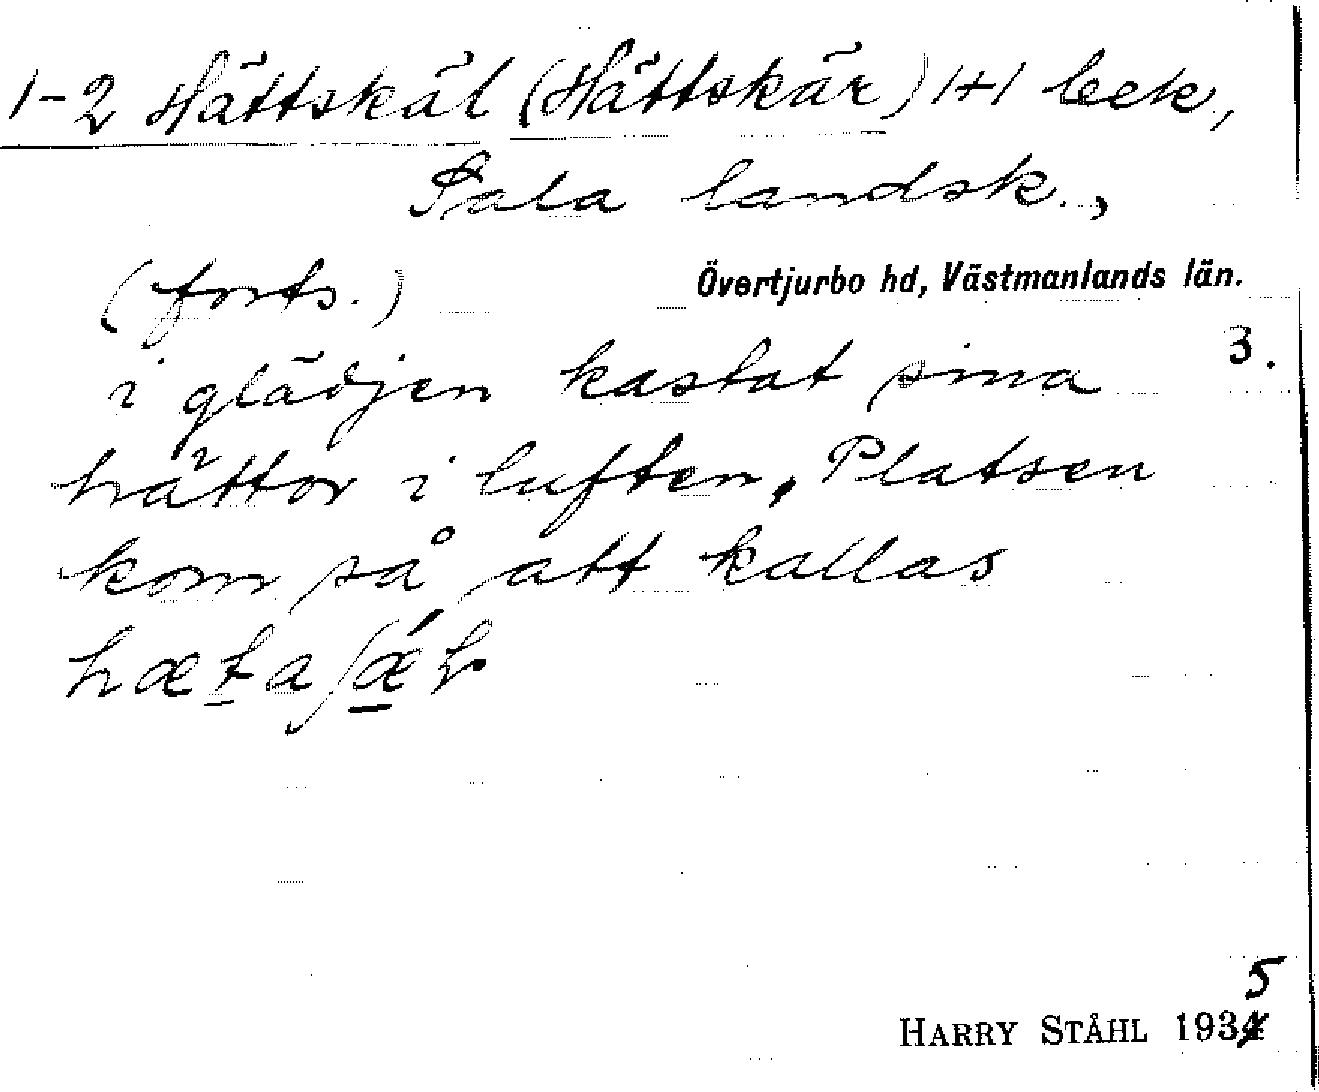 1-2 Hättskäl (Hättskär) 1+1 bek,
Sala landsk.,
(forts.)
Övertjurbo hd, Västmanlands län.
3.
i glädjen kastat sina
hättor i luften. Platsen
kom så att kallas
5
HARRY STÅHL 1934